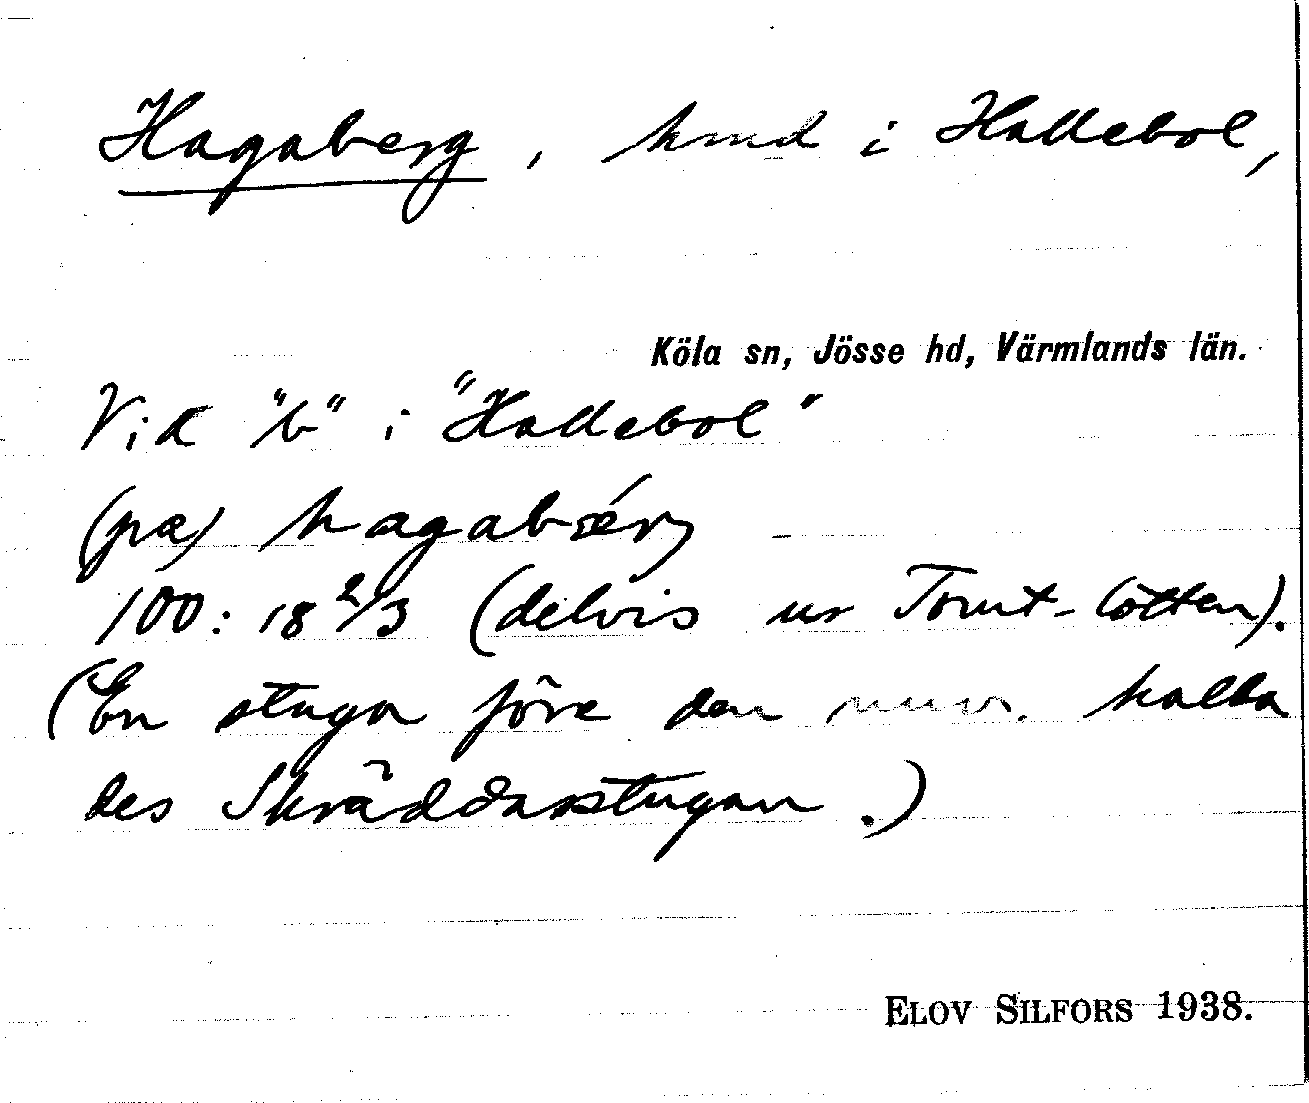 Hagaberg, hmd i Hallebol,
Köla sn, Jösse hd, Värmlands län.
Vik "b" i "Hallebol"
(pæ) hagabǽrj
100: 18 2/3 (delvis ur Tomt-lotten).
(En stuga före den nuv. kalla
des Skräddarstugan.)
ELOV SILFORS 1938.